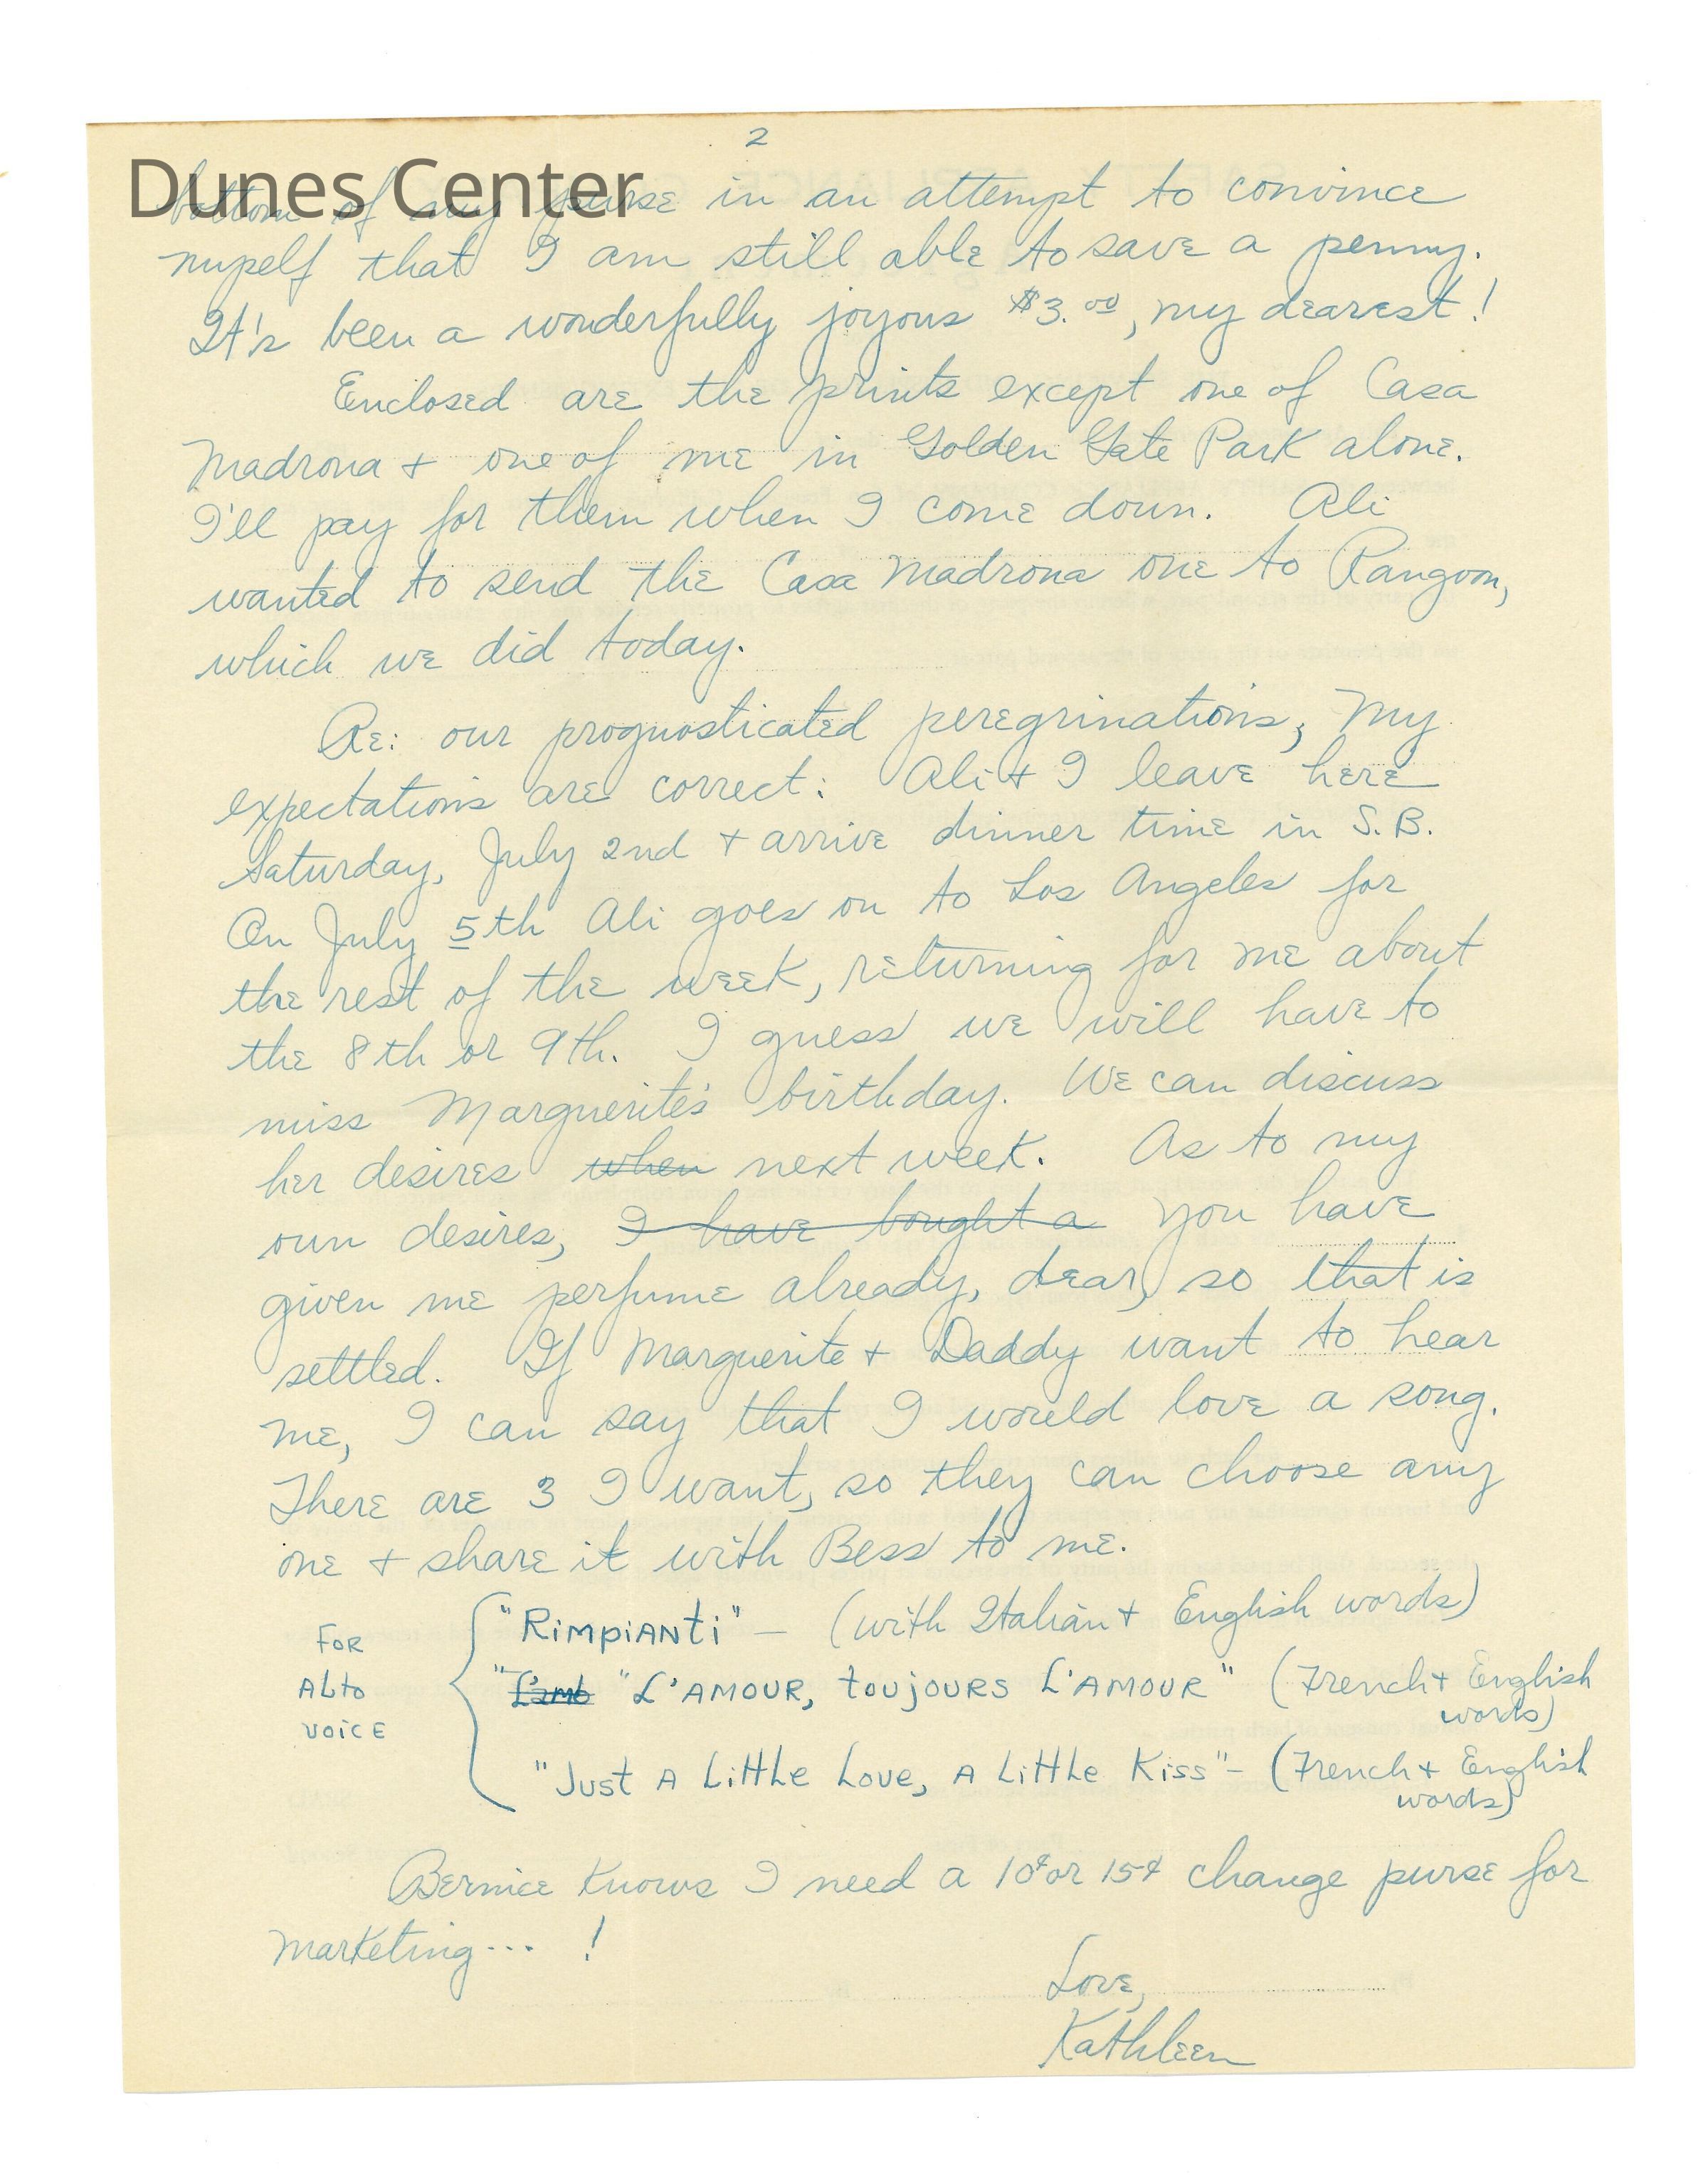 2
Dunes Center
bottom of my purse in an attempt to convince
myself that I am still able to save a penny.
It's been a wonderfully joyous $3.00, my dearest!
Enclosed are the prints except one of Casa
Madrona + one of me in Golden Gate Park alone.
I'll pay for them when I come down. Ali
wanted to send the Casa Madrona one to Rangoon,
which we did today.
Re: our prognosticated peregrinations, my
expectations are correct: Ali + I leave here
Saturday, July 2nd + arrive dinner time in S.B.
On July 5th Ali goes on to Los Angeles for
the rest of the week, returning for me about
the 8th or 9th. I guess we will have to
miss Marguerite's birthday. We can discuss
her desires when next week. As to my
own desires, I have bought a you have
given me perfume already, dear, so that is
settled. If Marguerite + Daddy want to hear
me, I can say that I would love a song.
There are 3 I want, so they can choose any
one + share it with Bess to me.
"Rimpianti" – (with Italian + English words)
FOR
ALto
VOICE
"L'amo "L'AMOUR, toujOURS L'AMOUR" (French + English
words)
"Just A Little Love, A Little Kiss" – (French + English
words)
Bernice knows I need a 10¢ or 15¢ change purse for
marketing... !
Love,
Kathleen